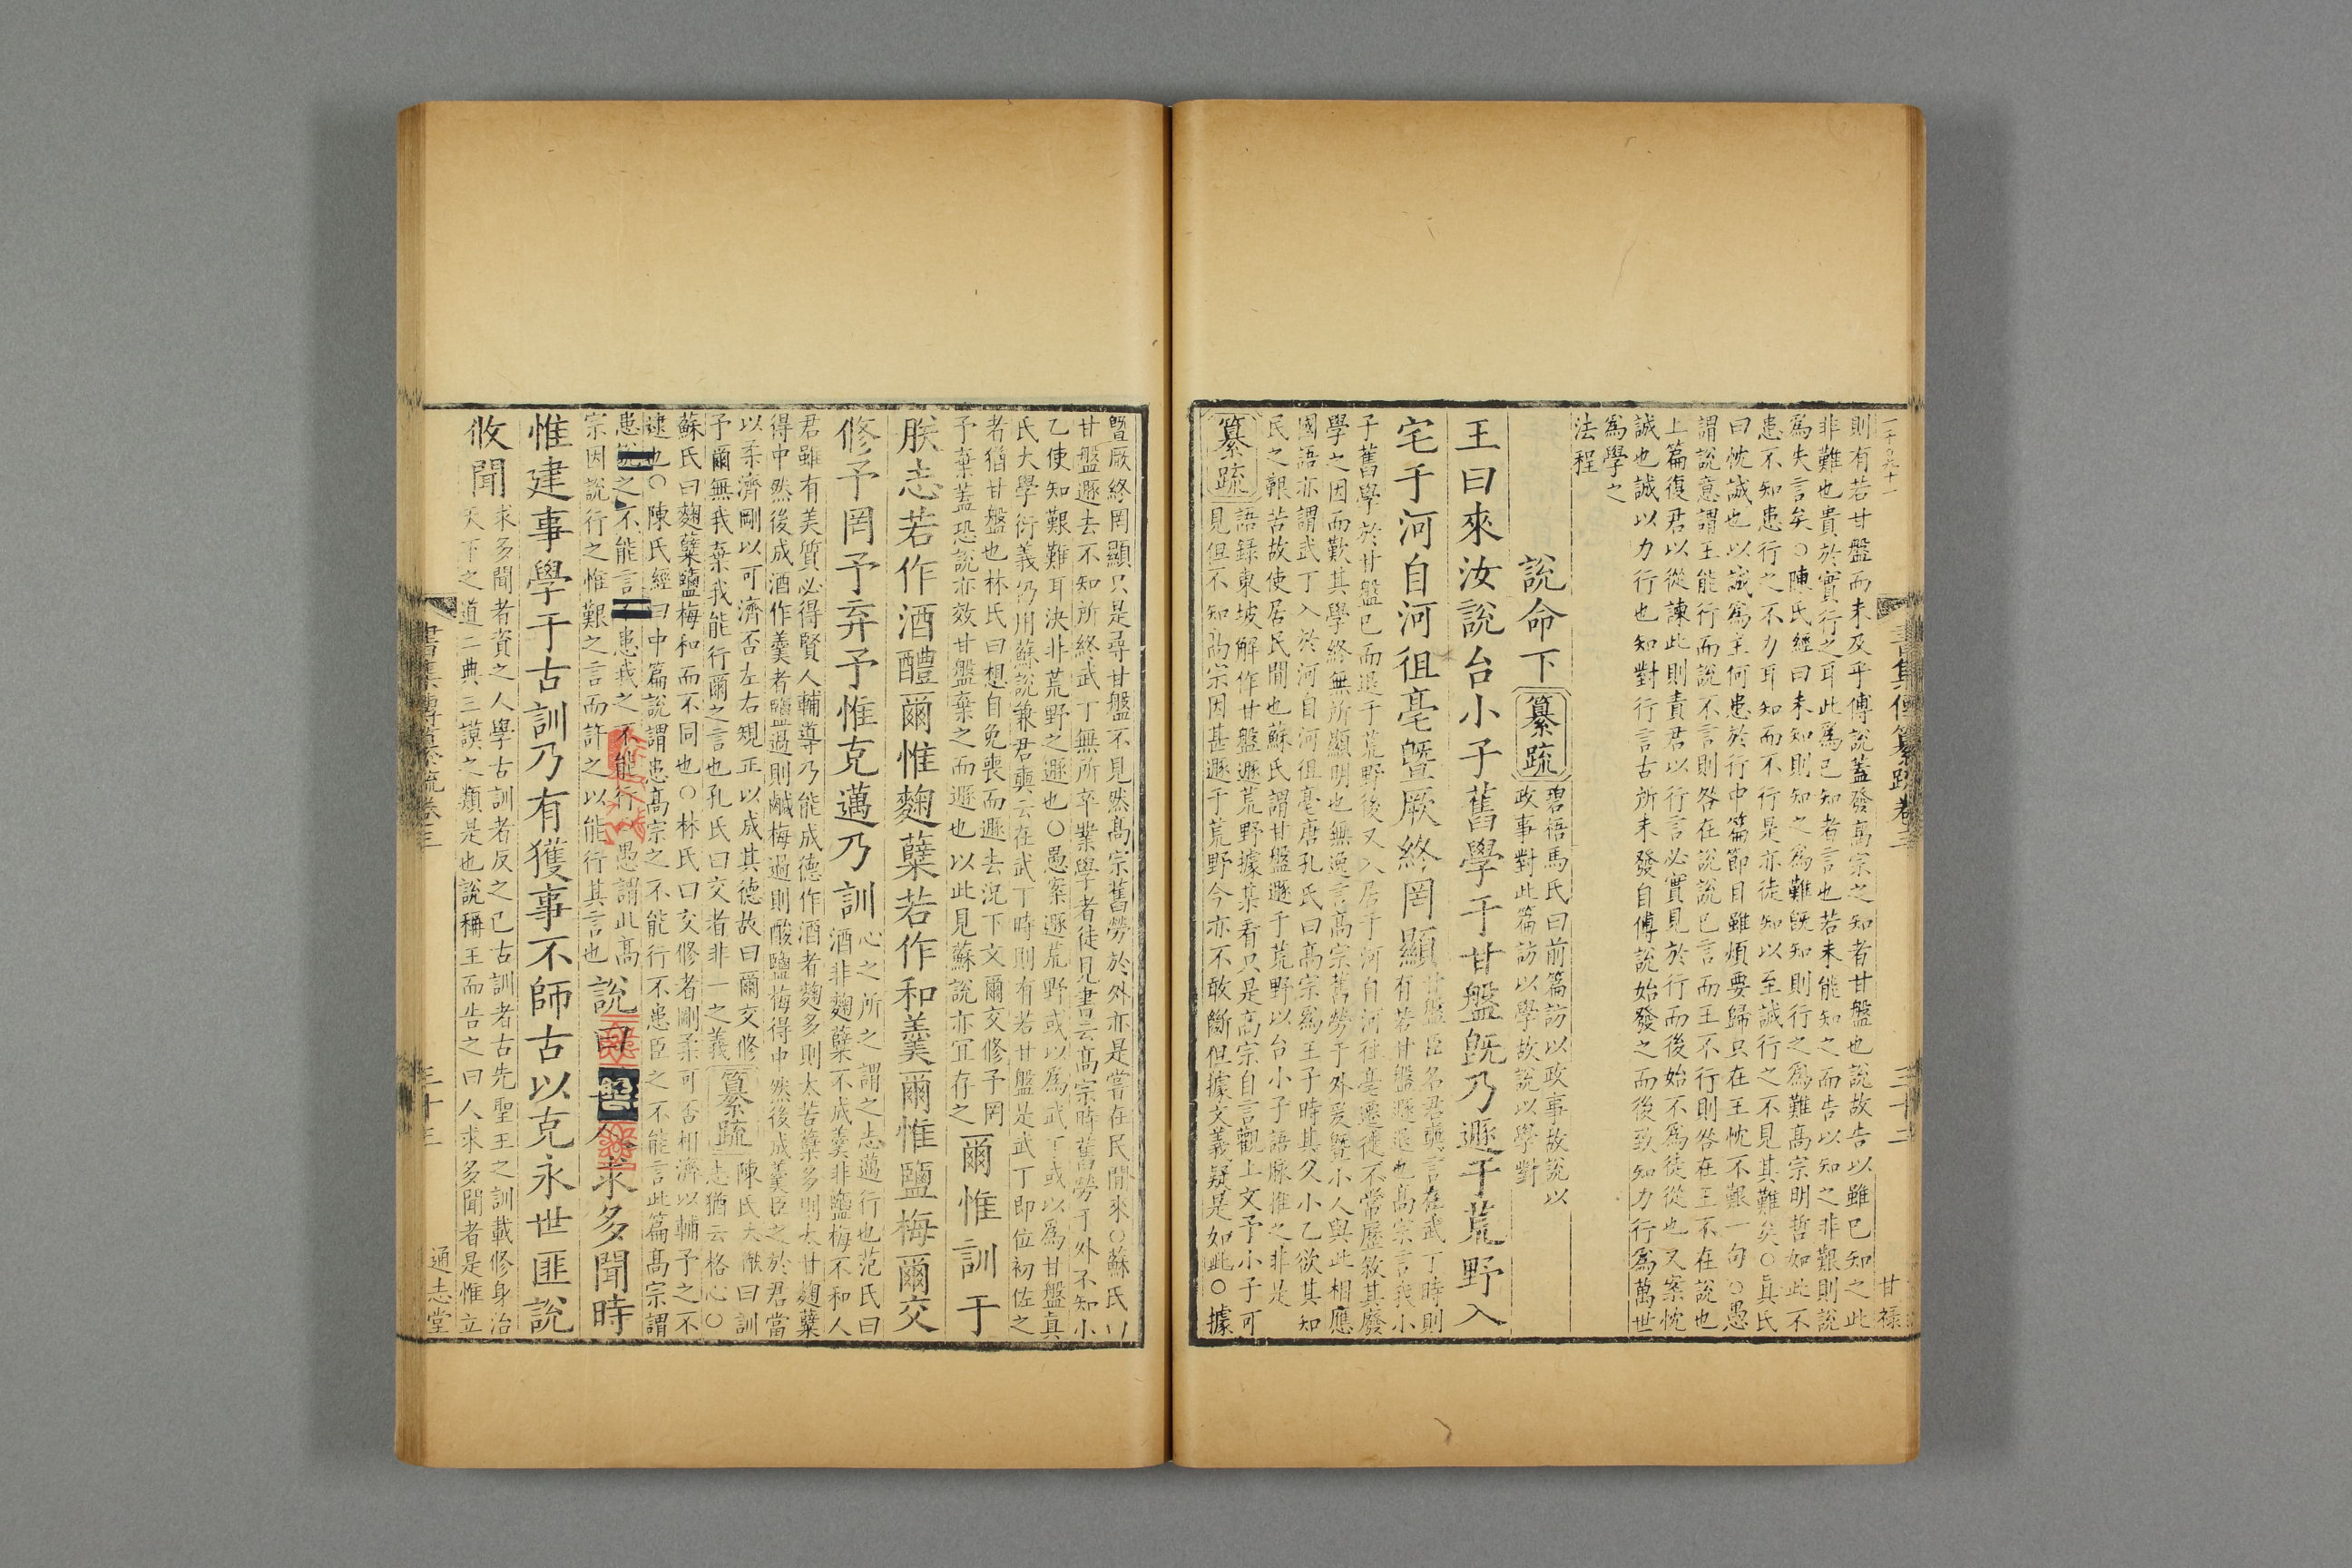 書集傳纂疏卷三
三十二
甘祿
則有若甘盤而未及乎傅說蓋發高宗之知者甘盤也說故告以雖已知之此
非難也貴於實行之耳此爲已知者言也若未能知之而告以知之非艱則說
爲失言矣○陳氏經曰未知則知之爲難旣知則行之爲難高宗明哲如此不
患不知患行之不力耳知而不行是亦徒知以至誠行之不見其難矣○眞氏
曰忱誠也以誠爲主何患於行中篇節目雖煩要歸只在王忱不艱一句○愚
謂說意謂王能行而說不言則咎在說說已言而王不行則咎在王不在說也
上篇復君以從諫此則責君以行言必實見於行而後始不爲徒從也又案忱
誠也誠以力行也知對行言古所未發自傅說始發之而後致知力行爲萬世
爲學之
法程
說命下
纂疏
碧梧馬氏曰前篇訪以政事故說以
政事對此篇訪以學故說以學對
王曰來汝說台小子舊學于甘盤旣乃遯于荒野入
宅于河自河徂亳曁厥終罔顯
甘盤臣名君奭言在武丁時則
有若甘盤遯退也高宗言我小
子舊學於甘盤已而退于荒野後又入居于河自河徂亳遷徙不常歷敘其廢
學之因而歎其學終無所顯明也無逸言高宗舊勞于外爰曁小人與此相應
國語亦謂武丁入於河自河徂亳唐孔氏曰高宗爲王子時其父小乙欲其知
民之艱苦故使居民間也蘇氏謂甘盤遯于荒野以台小子語脉推之非是
纂疏
語錄東坡解作甘盤遯荒野據某看只是高宗自言觀上文予小子可
見但不知高宗因甚遯于荒野今亦不敢斷但據文義疑是如此○據
曁厥終罔顯只是尋甘盤不見然高宗舊勞於外亦是嘗在民間來○蘇氏以
甘盤遯去不知所終武丁無所卒業學者徒見書云高宗時舊勞于外不知小
乙使知艱難耳決非荒野之遯也○愚案遯荒野或以爲武丁或以爲甘盤眞
氏大學衍義仍用蘇說兼君奭云在武丁時則有若甘盤是武丁即位初佐之
者猶甘盤也林氏曰想自免喪而遯去況下文爾交修予罔
予棄蓋恐說亦效甘盤棄之而遯也以此見蘇說亦宜存之
爾惟訓于
朕志若作酒醴爾惟麴糵若作和羹爾惟鹽梅爾交
修予罔予弃予惟克邁乃訓
心之所之謂之志邁行也范氏曰
酒非麴糵不成羹非鹽梅不和人
君雖有美質必得賢人輔導乃能成德作酒者麴多則太苦糵多則太甘麴糵
得中然後成酒作羹者鹽過則鹹梅過則酸鹽梅得中然後成羹臣之於君當
以柔濟剛以可濟否左右規正以成其德故曰爾交修
予爾無我棄我能行爾之言也孔氏曰交者非一之義
纂疏
陳氏大猷曰訓
志猶云格心○
蘇氏曰麴糵鹽梅和而不同也○林氏曰交修者剛柔可否相濟以輔予之不
逮也○陳氏經曰中篇說謂患高宗之不能行不患臣之不能言此篇高宗謂
患說之不能言不患我之不能行以愚謂此高
宗因說行之惟艱之言而許之以能行其言也
說曰王人求多聞時
惟建事學于古訓乃有獲事不師古以克永世匪說
攸聞
求多聞者資之人學古訓者反之己古訓者古先聖王之訓載修身治
天下之道二典三謨之類是也說稱王而告之曰人求多聞者是惟立
書集傳纂疏卷三
三十三
通志堂